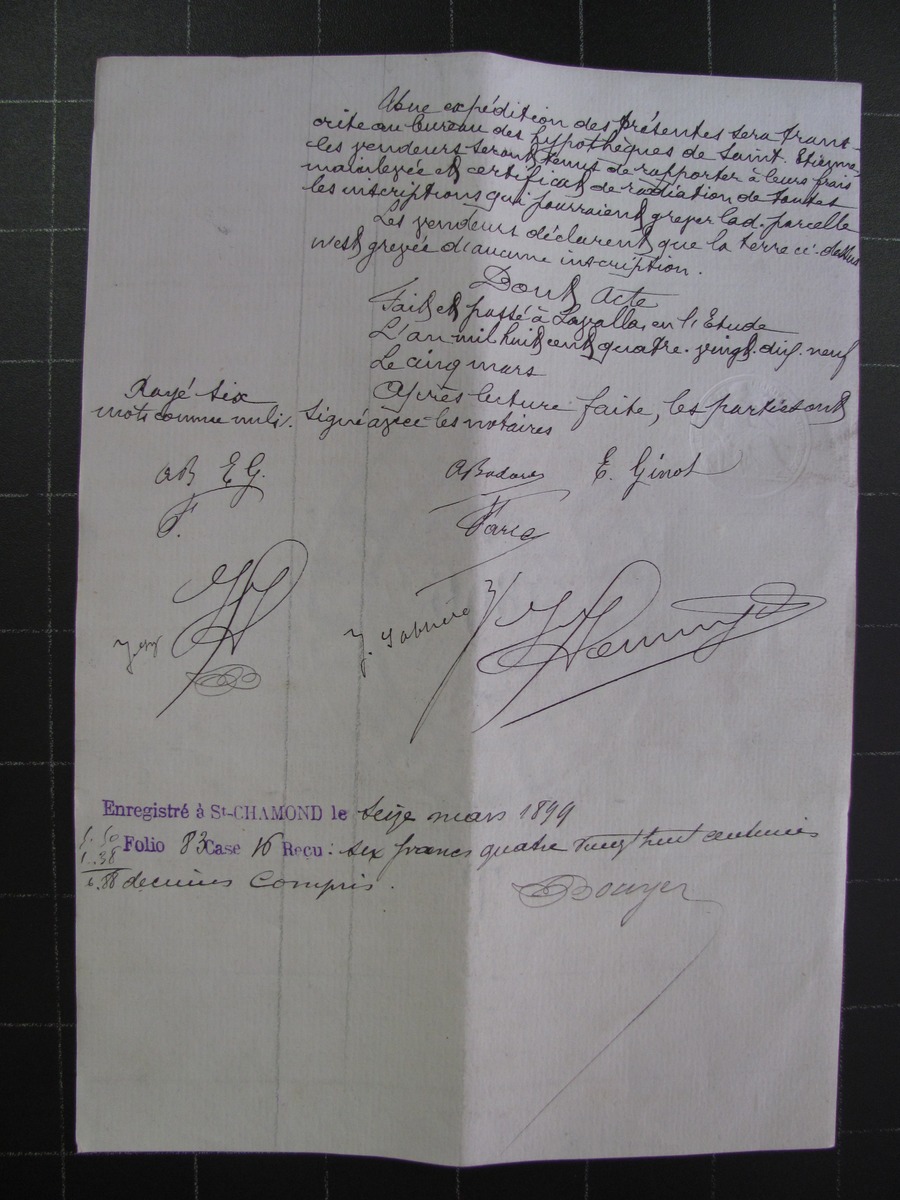 Une expédition des présentes sera trans-
crite au bureau des hypothèques de Saint-Etienne
les vendeurs seront tenus de rapporter à leurs frais
mainlevée et certificat de radiation de toutes
les inscriptions qui pourraient grever lad. parcelle
Les vendeurs déclarent que la terre ci-dessus
n'est grevée d'aucune inscription.
Dont Acte
Fait et passé à Lavalla, en l'Etude
L'an mil huit cent quatre-vingt-dix-neuf
Le cinq mars
Après lecture faite, les parties ont
signé avec les notaires
Rayé six
mots comme nuls.
AB EG.
F.
E. Ginot
Enregistré à St-CHAMOND le seize mars 1899
Folio 83 Case 16 Reçu : six francs quatre vingt huit centimes
decimes Compris.
5.50
1.38
6.88